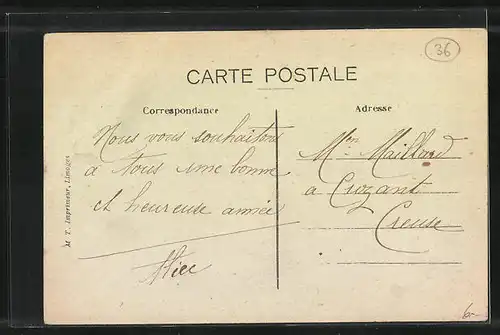 36
CARTE POSTALE
Correspondance
Nous vous souhaitons
à tous une bonne
et heureuse année
Alice
Adresse
Mr Maillard
à Crozant
Creuse
M. T. Imprimeur, Limoges